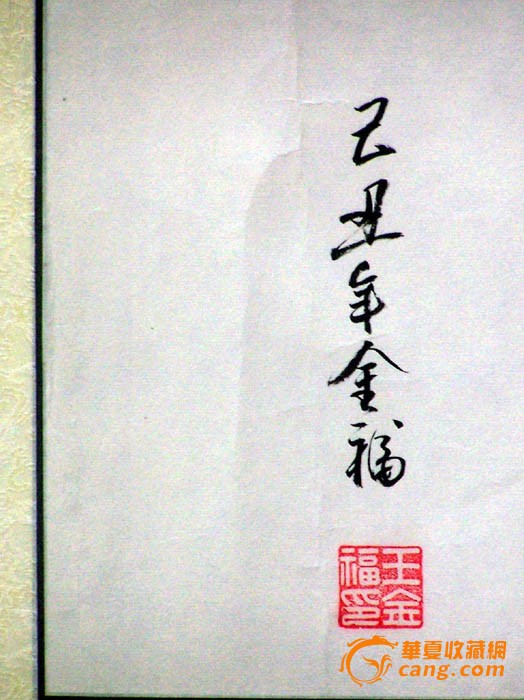 己丑年金福
王金
福印
華夏收藏網
cang.com